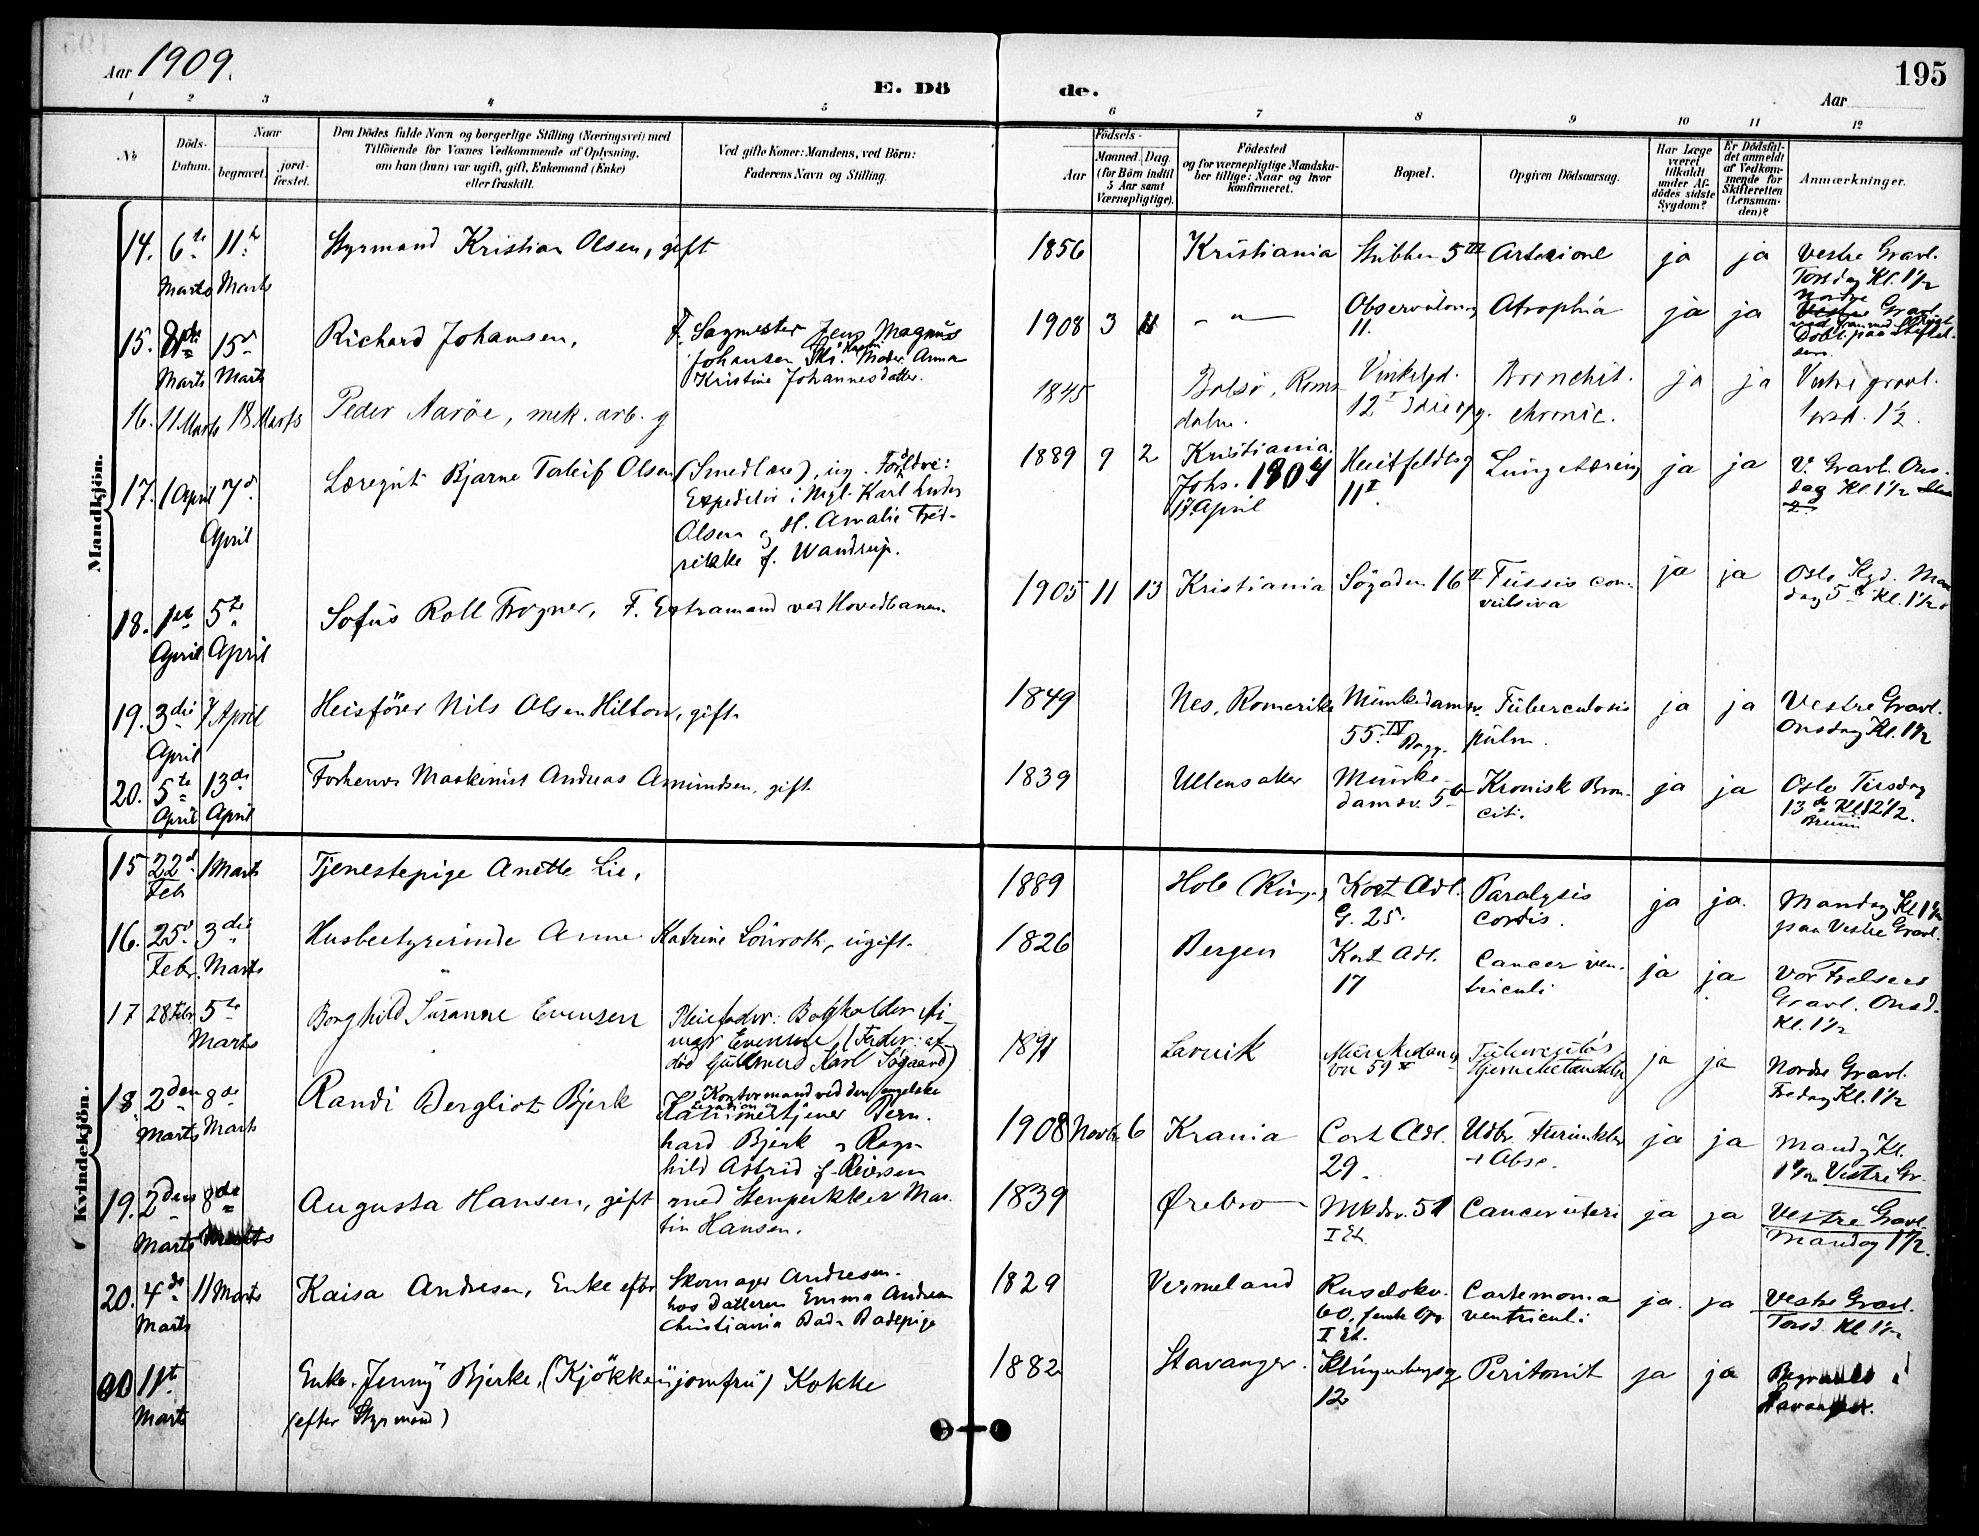 Aar 1909.
E. Dö
de.
195
Aar
1 2 3 4 5 6 7 8 9 10 11 12
No
Döds-Datum.
Naar
begravet.
jord-fæstet.
Den Dödes fulde Navn og borgerlige Stilling (Næringsvei) med
Tilföiende for Voxnes Vedkommende af Oplysning,
om han (hun) var ugift, gift, Enkemand (Enke)
eller fraskilt.
Ved gifte Koner: Mandens, ved Börn:
Faderens Navn og Stilling.
Födsels-
Aar
Maaned. Dag.
(for Börn indtil
5 Aar samt
Værnepligtige).
Födested
og for værnepligtige Mandska-
ber tillige: Naar og hvor
konfirmeret.
Bopæl.
Opgiven Dödsaarsag.
Har Læge
været
tilkaldt
under Af-
dödes sidste
Sygdom?
Er Dödsfal-
det anmeldt
af Vedkom-
mende for
Skifteretten
(Lensman-
den)?
Anmærkninger.
Mandkjön.
14. 6te Marts 11te Marts Styrmand Kristian Olsen, gift 1856 Kristiania 5 III ja ja Vestre Gravl.
Torsdag Kl. 1 1/2
15. Marts 15de Marts Richard Johansen, F. Sagmester Jens Magnus
Johansen Moder Anna
Kristine Johannesdatter.
1908 3 11 - " - 11. Atrophia ja ja Nordre Gravl.
16. 11 Marts 18 Marts Peder Aaröe, mek. arb. g 1845 Bolsö, Roms-
dalen.
12 I Bronchit.
chronic.
ja ja Vestre gravl.
Torsd. 1 1/2.
17. 1 April 7de April Læregut Bjarne Toleif Olsen (Smedlære), ug. Forældre:
Expeditör i Karl
Olsen og H. Amalie Fred-
rikke f. Wandrup.
1889 9 2 Kristiania
Johs. 1904
17 April
Huitfeldtsg
11 I.
Lungetæring ja ja V. Gravl. Ons-
dag Kl. 1 1/2
18. 1ste April 5te April Sofus Roll Frogner, F. Extramand ved Hovedbanen. 1905 11 13 Kristiania Sögaden 16 II Tussis con-
vulsiva
ja ja Oslo Kgd. Man-
dag 5te Kl. 1 1/2
19. 3die April 7 April Heisförer Nils Olsen Hilton, gift. 1849 Nes, Romerike Munkedamsv.
55. IV Bagg.
Tuberculosis
pulm.
ja ja Vestre Gravl.
Onsdag Kl. 1 1/2
20. 5te April 13de April Forhenv. Maskinist Andreas Amundsen, gift. 1839 Ullensaker Munke-
damsv. 5
Kronisk Bron-
cit.
ja ja Oslo Tirsdag
13de Kl. 12 1/2.
Kvindekjön.
15 22d Feb 1 Marts Tjenestepige Anette Lie, 1889 Hole (Ring.) Kort Adl.
G. 25.
Paralysis
cordis.
ja ja. Mandag Kl 1 1/2
paa Vestre Gravl.
16. 25d Febr. 3die Marts Husbestyrerinde Anne Katrine Lönroth, ugift. 1826 Bergen Kort Adl.
17
Cancer ven-
triculi
ja ja Vor Frelsers
Gravl. Onsd.
Kl. 1 1/2
17 28 Febr 5te Marts Borghild Susanne Evensen Pleiefader: Bogholder
Evensen, (Fader: af-
död Karl Sögaard)
1891 Larvik Munkedams-
vn 59
ja ja Nordre Gravl.
Fredag Kl. 1 1/2
18. 2den Marts 8de Marts Randi Bergliot Bjerk Kontormand ved den engelske
Legation
Bern-
hard Bjerk og Ragn-
hild Astrid f. Iversen
1908 Novbr 6 Krania Cort Adl.
29.
ja ja Mandag Kl.
1 1/2 Vestre Gr.
19. 2den Marts 8de Marts Augusta Hansen, gift med Stenpukker Mar-
tin Hansen.
1839 Ørebro Mkdsv. 51
I Et.
Cancer uteri ja ja Vestre Gravl.
Mandag 1 1/2.
20. 4de Marts 11 Marts Kaisa Andresen, Enke efter Skomager Andresen.
hos datteren Emma Andresen
Christiania Bad. Badepige
1829 Vermeland Ruselökv.
60,
I Et.
ventriculi
ja. ja Vestre Gravl.
Torsd. Kl 1 1/2
1st Marts Enke Jenny Bjerke, (Kjökkenjomfru) Kokke
(efter Styrmand)
1882 Stavanger. Klingenbergsg
12
Peritonit ja ja Begravet i
Stavanger.